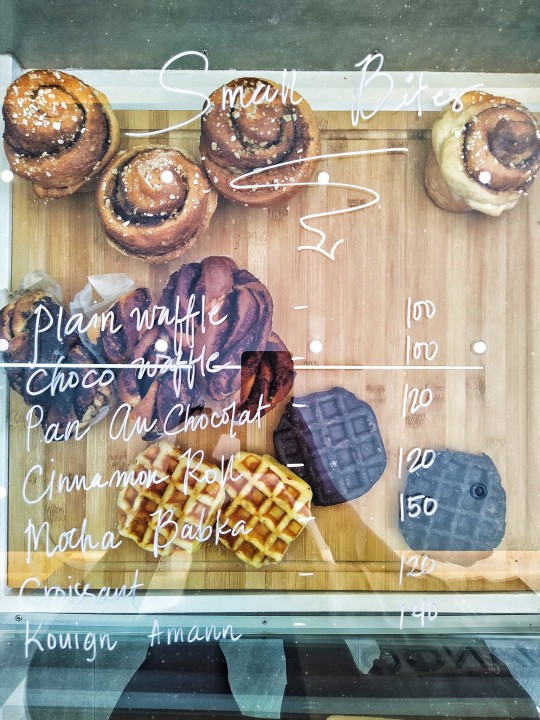 Small Bites
Plain waffle - 100
Choco waffle - 100
Pan Au Chocolat - 120
Cinnamon Roll - 120
Mocha Babka - 150
Croissant - 120
Kouign Amann 140